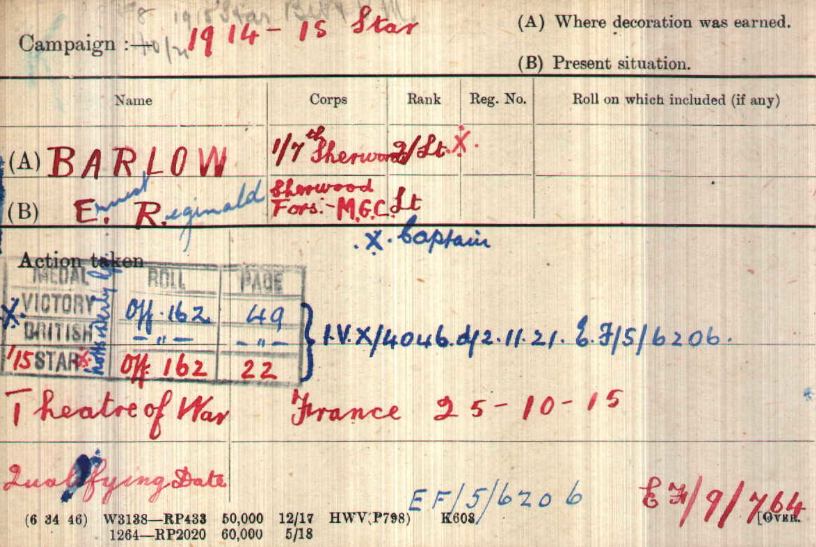 Campaign :— 1914-15 Star
(A) Where decoration was earned.
(B) Present situation.
Name Corps Rank Reg. No. Roll on which included (if any)
(A) BARLOW 1/7th Sherwood 2/Lt. X.
(B) Ernest Reginald Sherwood Fors:- M.G.C. Lt
X. Captain
Action taken
MEDAL ROLL PAGE
X VICTORY Off. 162 49
BRITISH — " — — " —
'15 STAR X Off. 162 22
I.V.X/4046.d/2.11.21. E.F/5/6206.
Theatre of War France 25-10-15
Qualifying Date
EF/5/6206 EF/9/764
(6 34 46) W3138—RP433 50,000 12/17 HWV(P798) K608 [OVER.
1264—RP2020 60,000 5/18